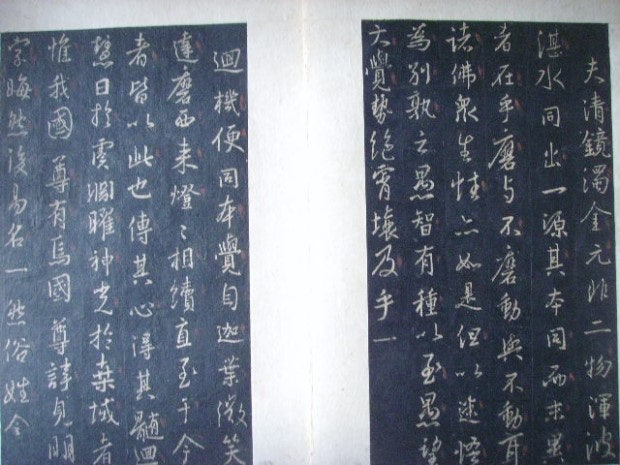 夫清鏡濁金元非二物渾波
湛水同出一源其本同而末異
者在乎磨与不磨動與不動耳
諸佛衆生性亦如是但以迷悟
為別孰云愚智有種以至愚望
大覺勢絶霄壤及乎一
迴機便同本覺自迦葉微笑
達磨西来燈〻相續直至于今
者皆以此也傳其心得其髓迴
慧日於虞淵曜神光於桑域者
惟我國尊有焉國尊諱見明
字晦然後易名一然俗姓金